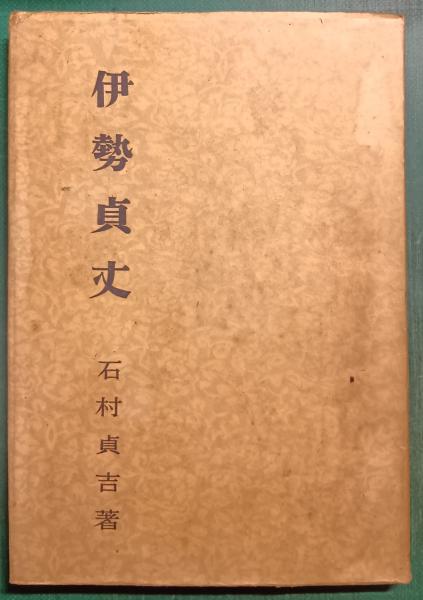 伊勢貞丈
石村貞吉著